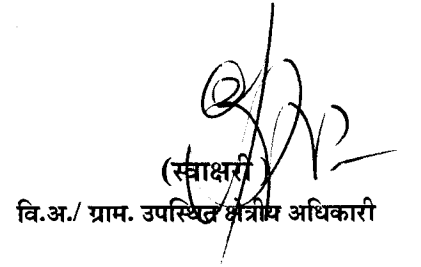 (स्वाक्षरी)
वि.अ./ ग्राम. उपस्थित क्षेत्रीय अधिकारी